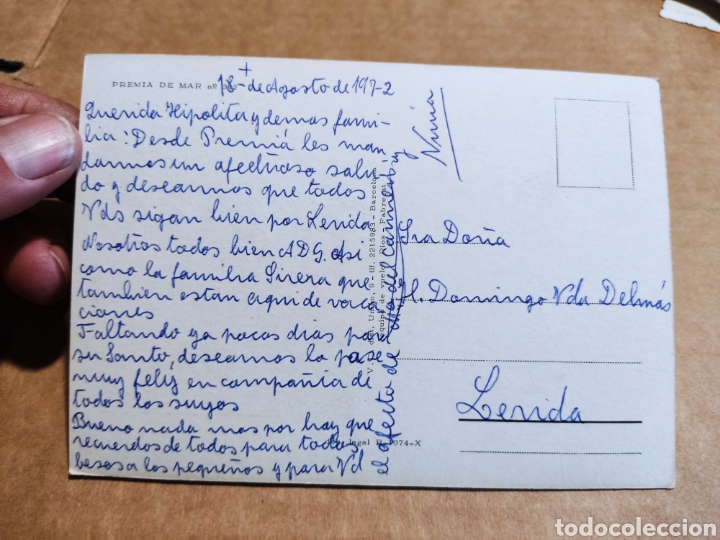 PREMIA DE MAR nº
18 + de Agosto de 197-2
Querida Hipolita y demas fami-
lia: Desde Premiá les man-
damos un afectuoso salu-
do y deseamos que todos
Vds sigan bien por Lerida
Nosotros todos bien A D G. asi
como la familia Sirera que
tambien estan aqui de vaca
ciones
Faltando ya pocos dias para
su Santo, deseamos lo pase
muy feliz en compañia de
todos los suyos
Bueno nada mas por hoy que
recuerdos de todos para todos,
besos a los pequeños y para Vd
el afecto de Mª del Carmen y
Nuria
Sra Doña
H. Domingo Vda Delmás
Lerida
Unión, 9 - tlf. 2215983 - Barcelona
legal B. 074-X
todocoleccion